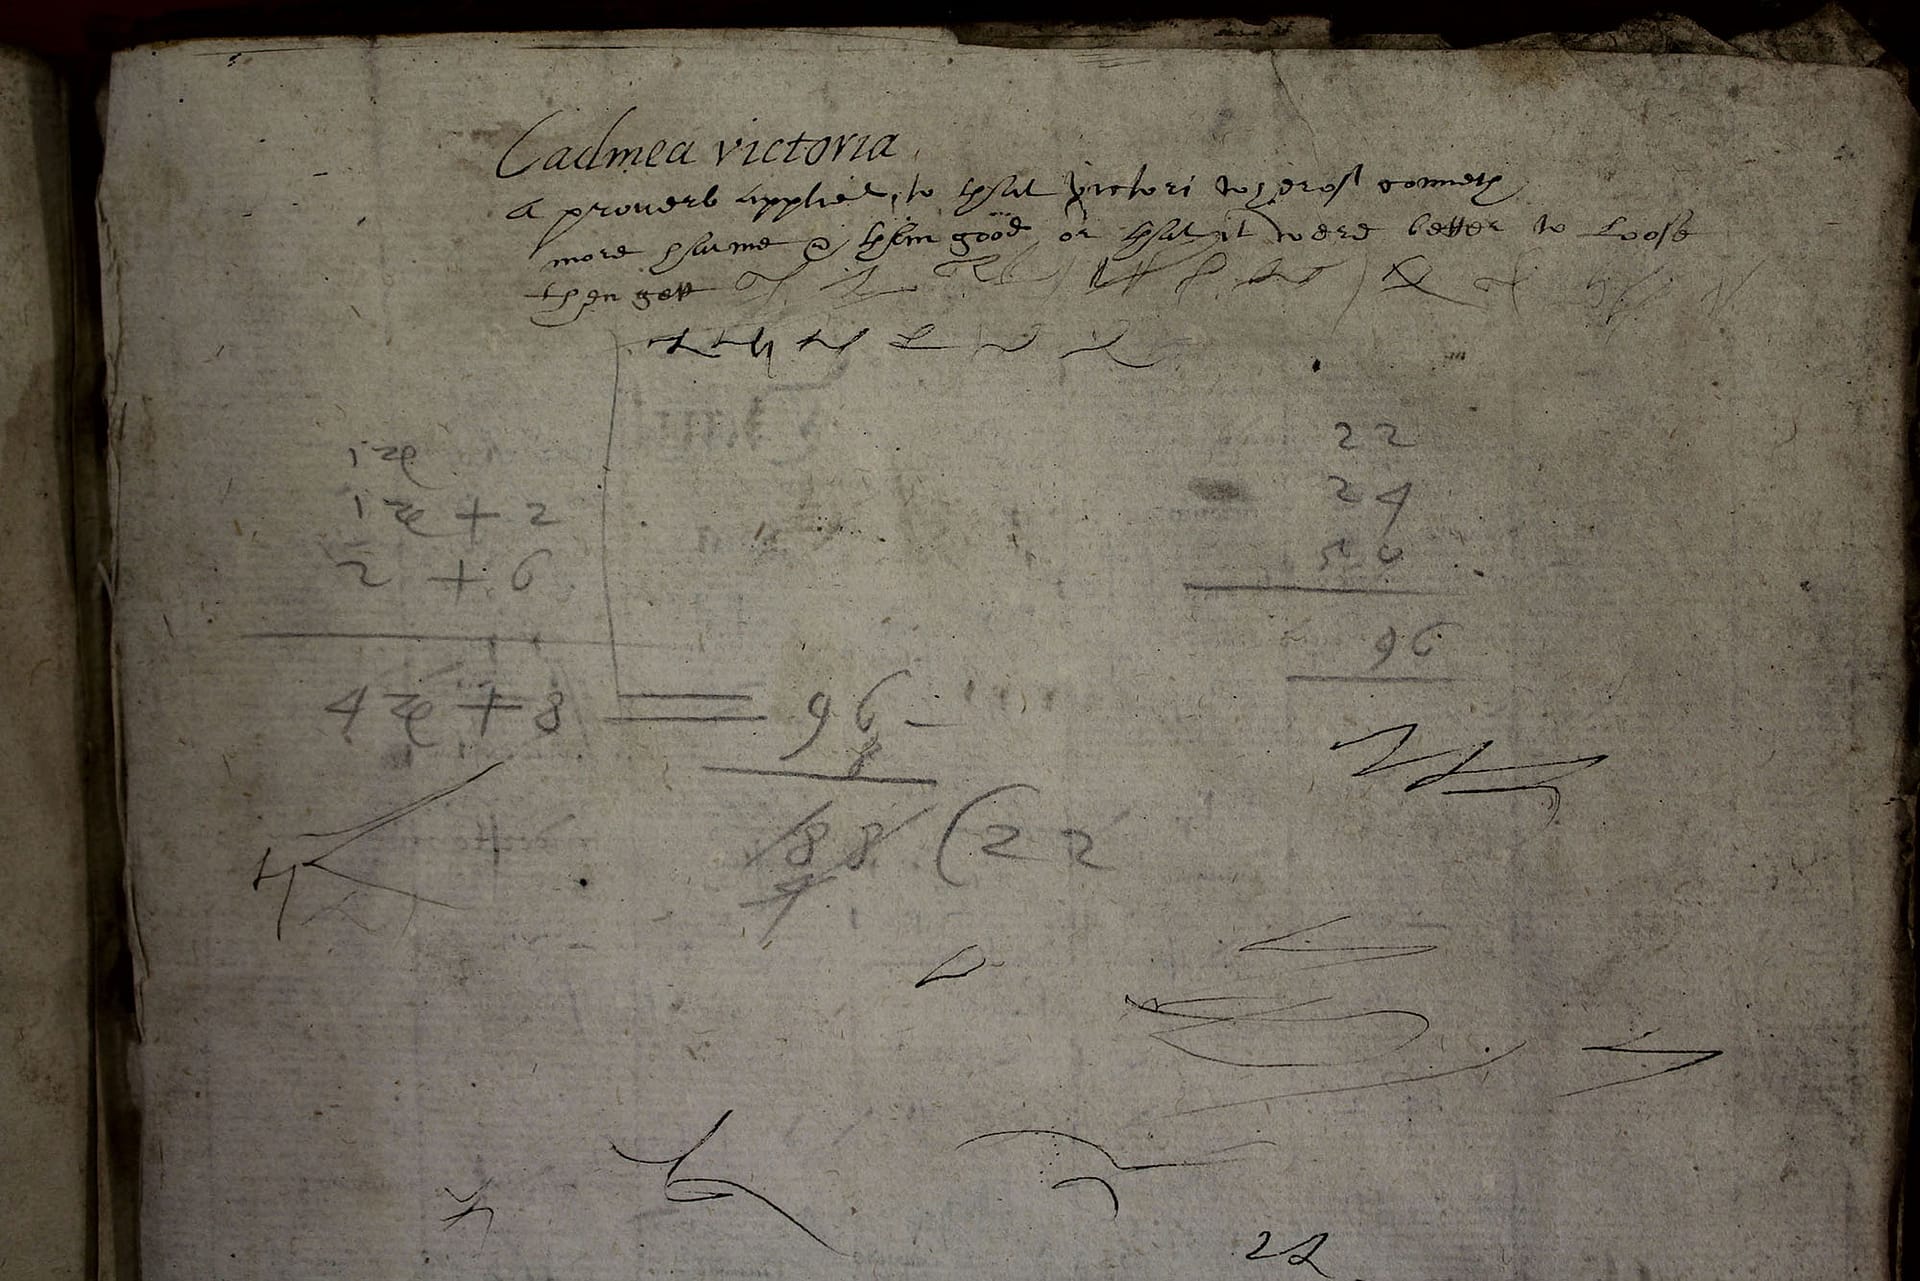 Cadmea victoria
a proverb applied to that victori wherof commeth
more harme then good or that it were better to loose
then gett
1ze
1ze + 2
2 + 6
4ze + 8 = 96
8
88 (22
4
22
24
50
96
22